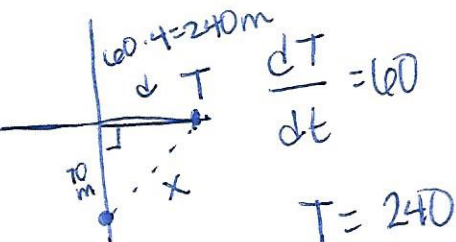 60·4=240m
d T
dT/dt =60
70
m
x
T= 240